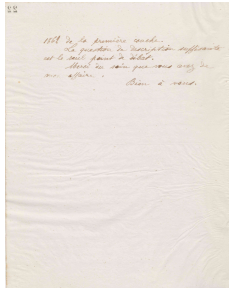 1862 de la première couche.
La question de description suffisante
est le seul point de débat.
Merci du soin que vous avez de
mon affaire.
Bien à vous.